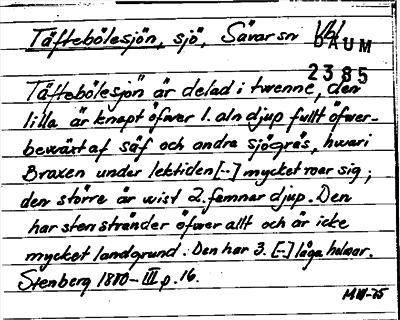 Täftebölesjön, sjö, Sävar sn Vb
DAUM
2385
Täftebölesjön är delad i twenne, den
lilla är knapt öfwer 1. aln djup fullt öfwer-
bewäxt af säf och andra sjögräs, hwari
Braxen under lektiden [--] mycket roar sig;
den större är wist 2. famnar djup. Den
har sten stränder öfwer allt och är icke
mycket landgrund. Den har 3. [-] låga holmar.
Stenberg 1800-III p. 16.
MW-75